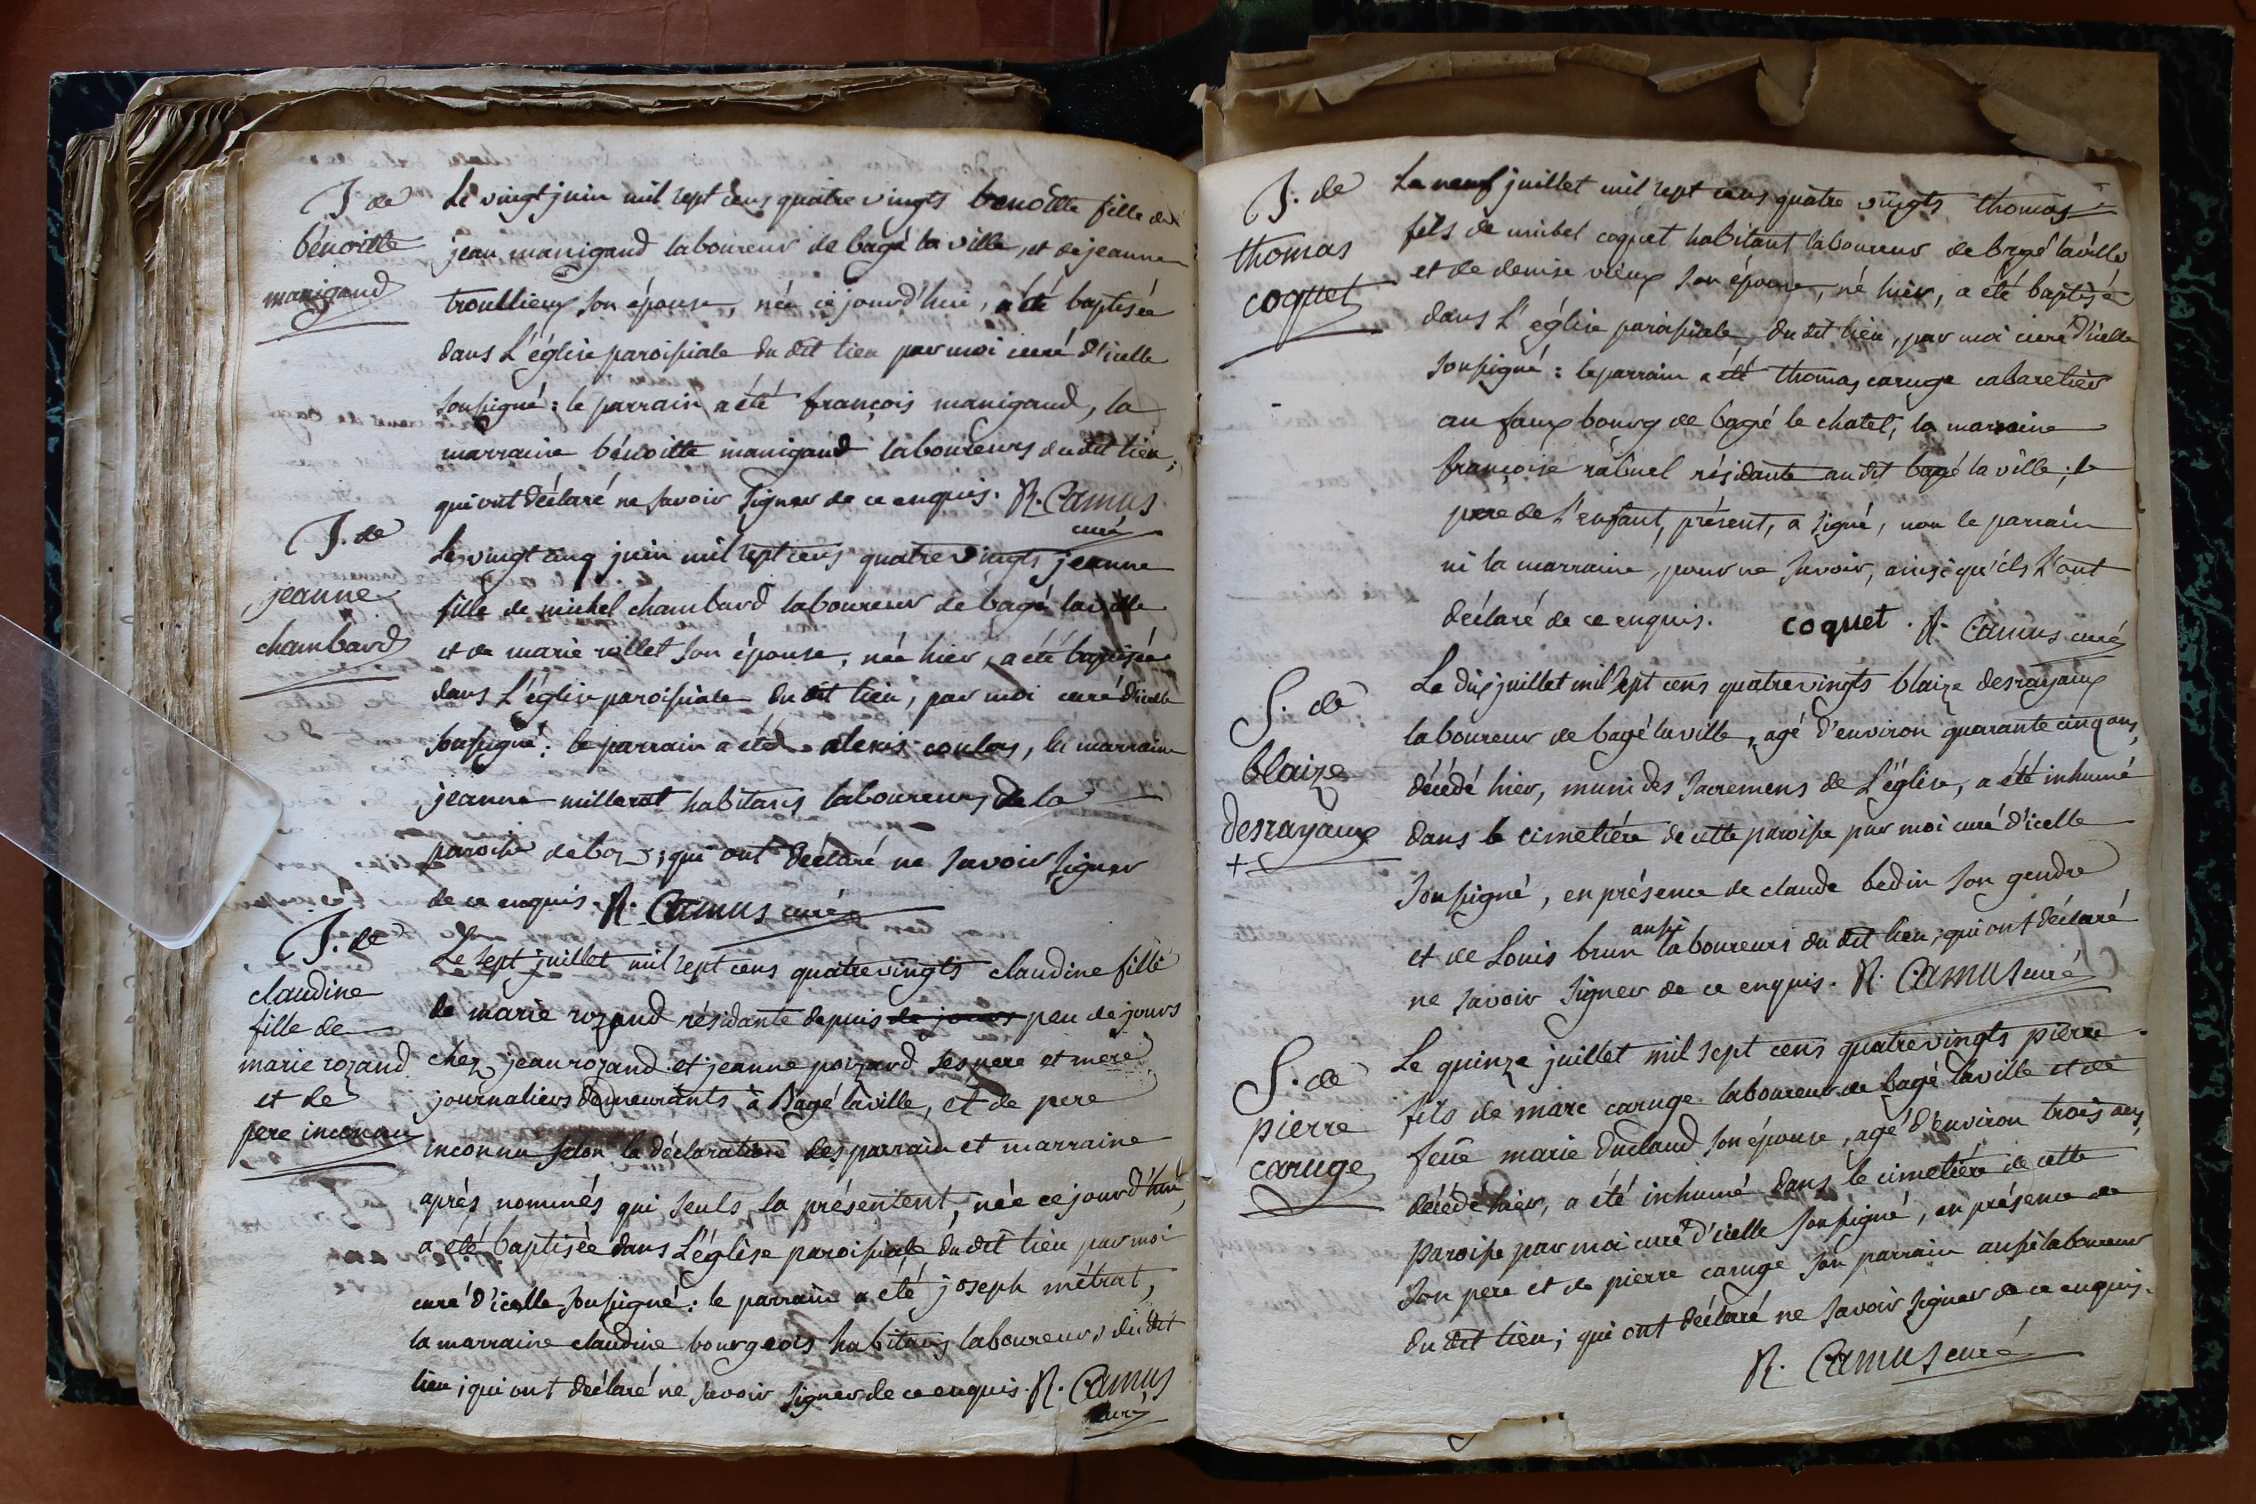 J. de
bénoitte
manigaud
Le vingt juin mil sept cens quatre vingts benoitte fille de
jean manigaud laboureur de bagé la ville, et de jeanne
troullieux son épouse, née ce jourd'hui, a été baptisée
dans L'église paroissiale du dit lieu par moi curé d'icelle
soussigné : le parrain a été françois manigaud, la
marraine bénoitte manigaud laboureurs du dit lieu ;
qui ont déclaré ne savoir signer de ce enquis. R. Camus
curé
J. de
jeanne
chambard
Le vingt cinq juin mil sept cens quatre vingts jeanne
fille de michel chambard laboureur de bagé la ville
et de marie rollet son épouse, née hier, a été baptisée
dans L'église paroissiale du dit lieu, par moi curé d'icelle
soussigné : le parrain a été alexis coulas, la marraine
jeanne millerat habitans laboureurs de la
paroisse de boz ; qui ont déclaré ne savoir signer
de ce enquis. R. Camus curé
J. de
claudine
fille de
marie rozand
et de
pere inconnu
Le sept juillet mil sept cens quatre vingts claudine fille
de marie rozand résidante depuis de jours peu de jours
chez jean rozand et jeanne poizard ses pere et mere
journaliers demeurants à Bagé la ville, et de pere
inconnu selon la déclaration des parrain et marraine
après nommés qui seuls la présentent, née ce jourd'hui,
a été baptisée dans L'église paroissiale du dit lieu par moi
curé d'icelle soussigné : le parrain a été joseph métrat,
la marraine claudine bourgeois habitans laboureurs du dit
lieu ; qui ont déclaré ne savoir signer de ce enquis. R. Camus
curé
J. de
thomas
coquet
Le neuf juillet mil sept cens quatre vingts thomas
fils de michel coquet habitant laboureur de bagé la ville
et de denise vieux son épouse, né hier, a été baptisé
dans L'église paroissiale du dit lieu, par moi curé d'icelle
soussigné : le parrain a été thomas caruge cabaretier
au faux bourg de bagé le chatel, la marraine
françoise rabuel résidante au dit bagé la ville ; le
pere de L'enfant, présent, a signé, non le parrain
ni la marraine, pour ne savoir, ainsi qu'ils L'ont
déclaré de ce enquis. coquet . R. Camus curé
S. de
blaize
desrayaux
+
Le dix juillet mil sept cens quatre vingts blaize desrayaux
laboureur de bagé la ville, agé d'environ quarante cinq ans,
décédé hier, muni des sacremens de L'église, a été inhumé
dans le cimetiére de cette paroisse par moi curé d'icelle
soussigné, en présence de claude bedin son gendre
et de Louis brun aussi laboureurs du dit lieu ; qui ont déclaré
ne savoir signer de ce enquis. R. Camus curé
S. de
pierre
caruge
Le quinze juillet mil sept cens quatre vingts pierre
fils de marc caruge laboureur de bagé la ville et de
feüe marie duclaud son épouse, agé d'environ trois ans,
décédé hier, a été inhumé dans le cimetiére de cette
paroisse par moi curé d'icelle soussigné, en présence de
son pere et de pierre caruge son parrain aussi laboureur
du dit lieu ; qui ont déclaré ne savoir signer de ce enquis.
R. Camus curé